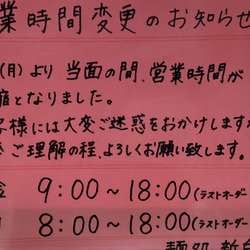 業時間変更のお知らせ
(月)より 当面の間、営業時間が
となりました。
様には大変ご迷惑をおかけしますが
ご理解の程、よろしくお願い致します。
9:00~18:00(ラストオーダー
8:00~18:00(ラストオーダー